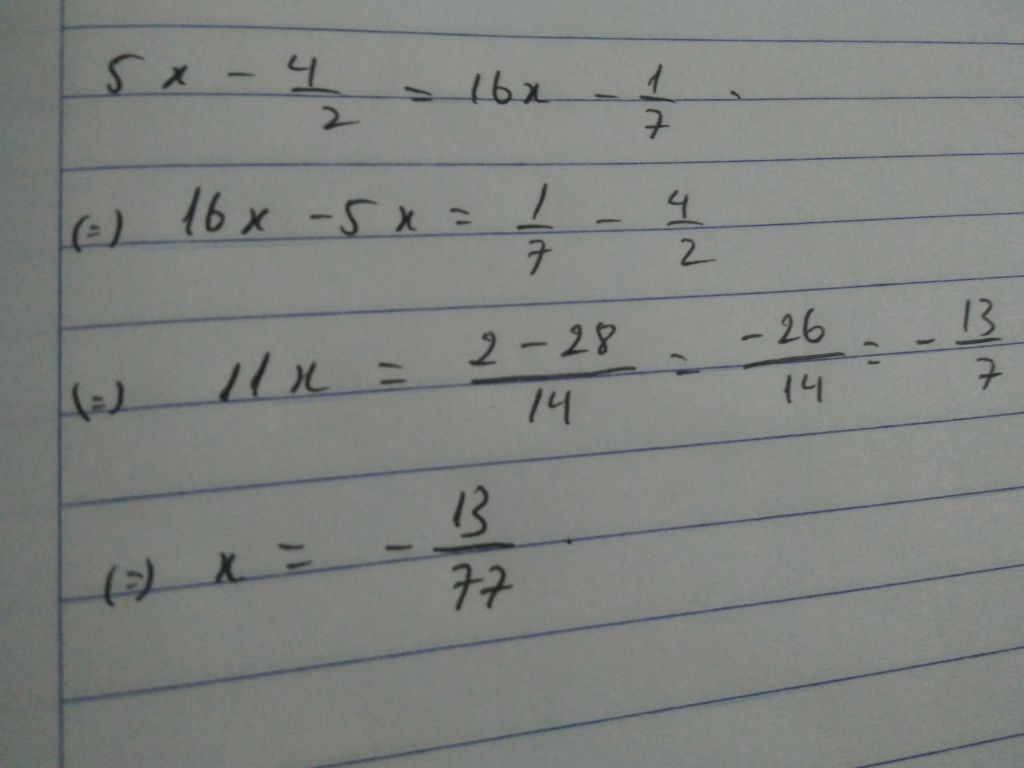 5x - 4/2 = 16x - 1/7.
(=) 16x - 5x = 1/7 - 4/2
(=) 11x = (2 - 28)/14 = -26/14 = -13/7
(=) x = -13/77.